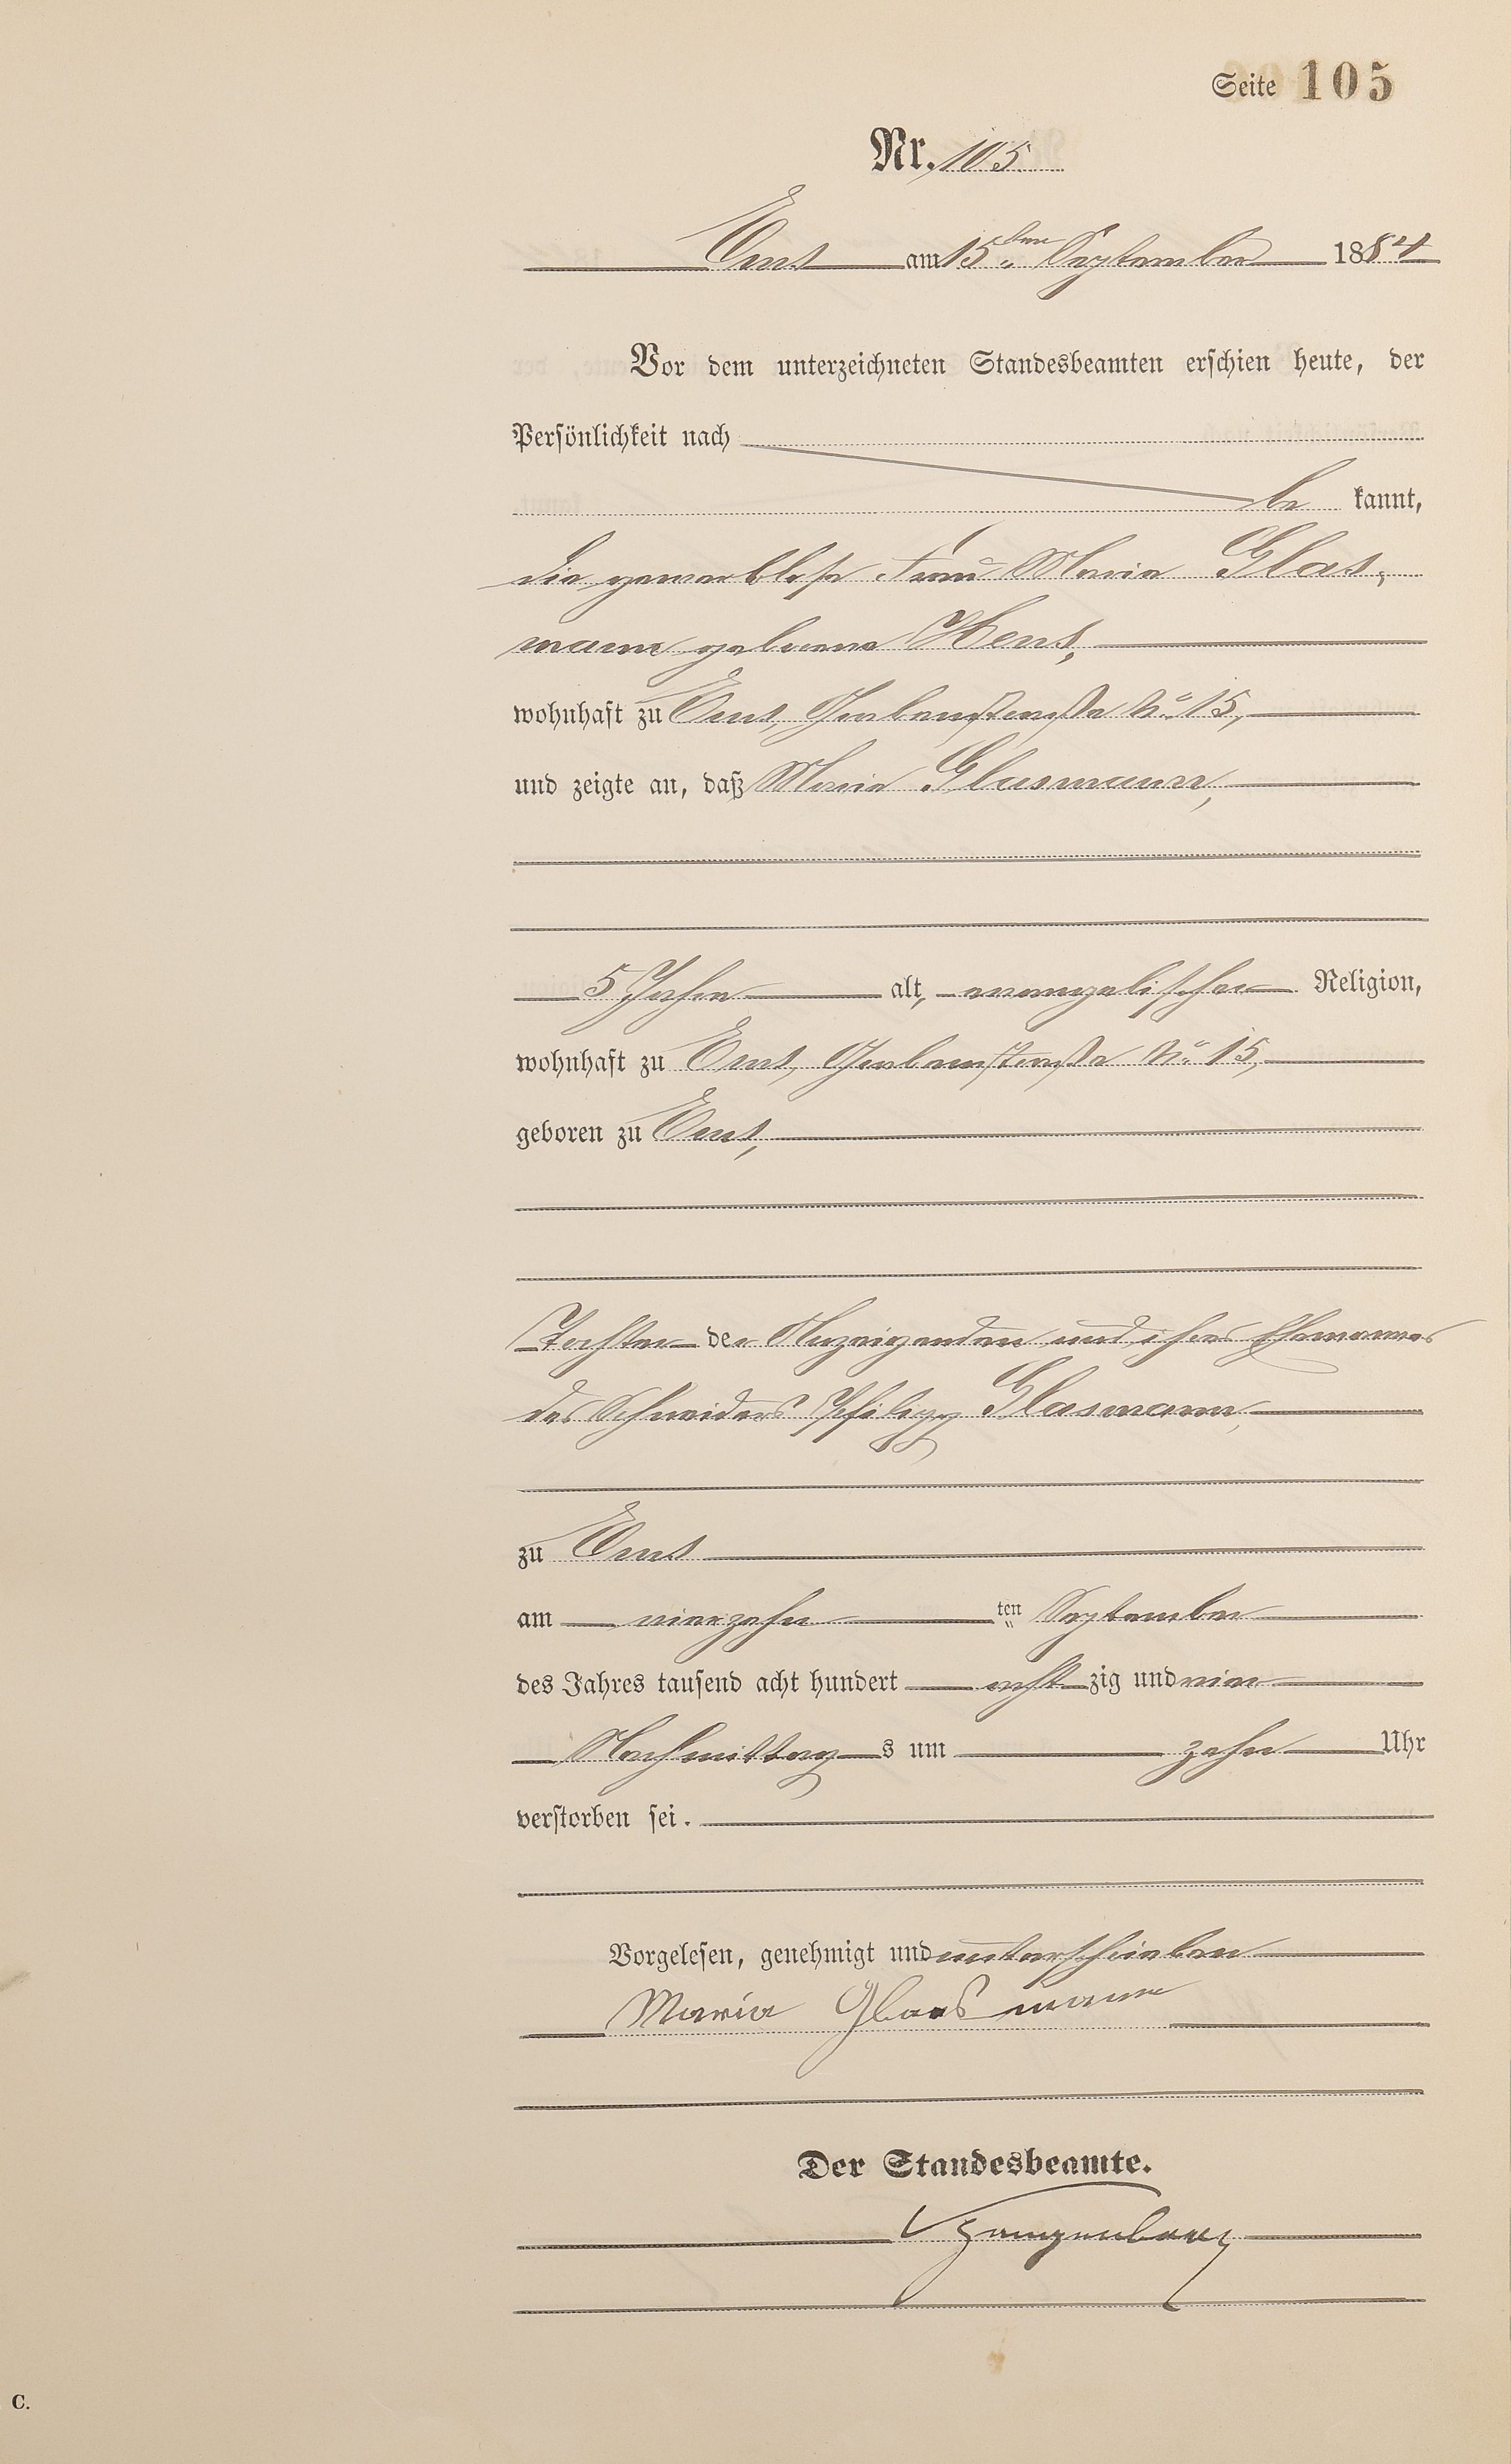 Seite 105
Nr. 105.
Ems am 15ten September 1884
Vor dem unterzeichneten Standesbeamten erschien heute, der
Persönlichkeit nach
be kannt,
die gewerblose Frau Maria Glas-
mann geborene Hens,
wohnhaft zu Ems, Grabenstraße No 15,
und zeigte an, daß Maria Glasmann,
5 Jahre alt, evangelischer Religion,
wohnhaft zu Ems, Grabenstraße No 15,
geboren zu Ems,
Tochter der Anzeigenden und ihres Ehemannes
des Schneiders Philipp Glasmann,
zu Ems
am vierzehn ten September
des Jahres tausend acht hundert acht zig und vier
Nachmittag s um zehn Uhr
verstorben sei.
Vorgelesen, genehmigt und unterschrieben
Maria Glasmann
Der Standesbeamte.
C.